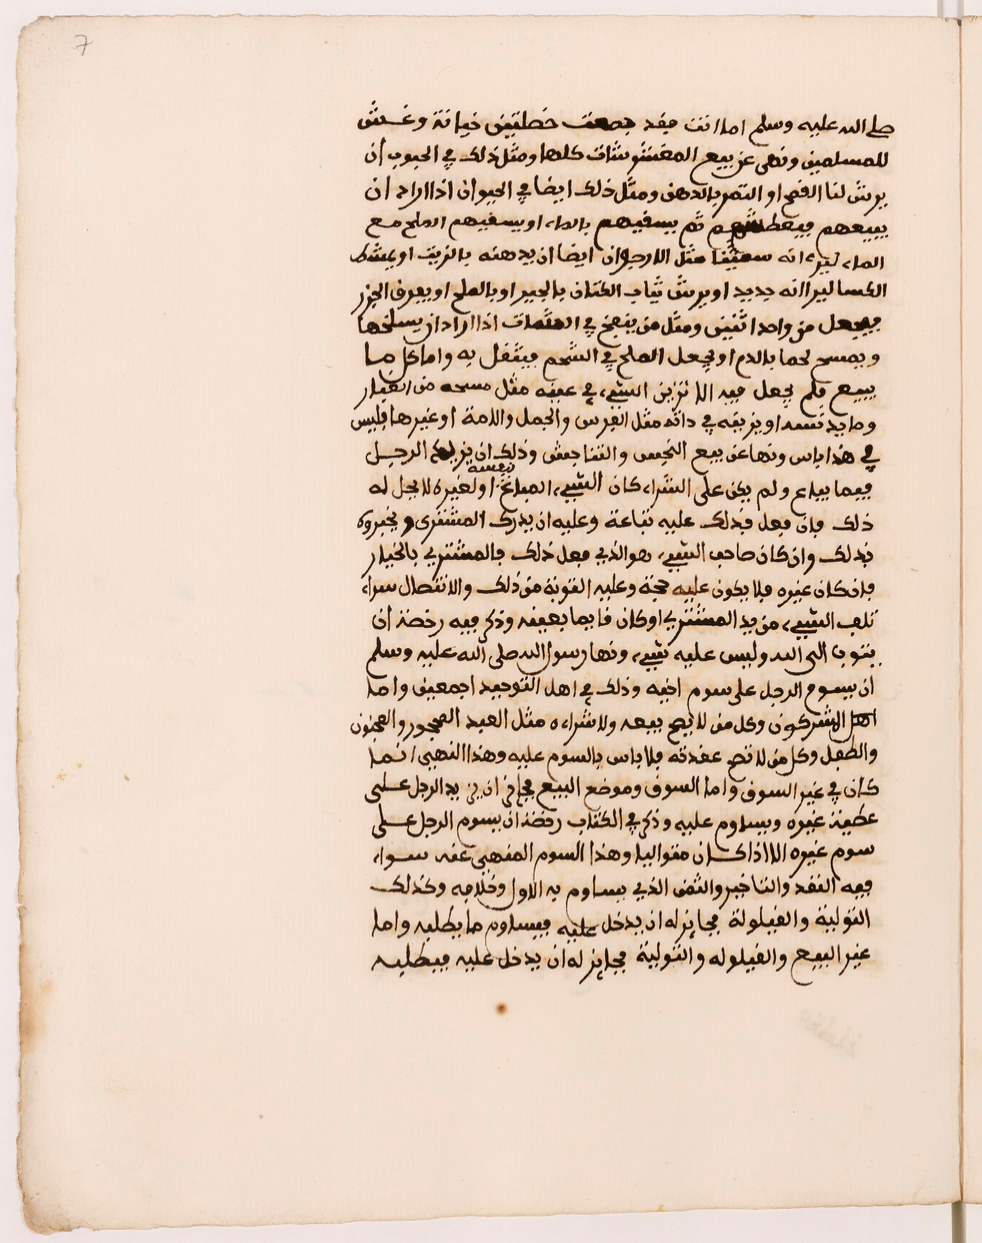 7
صلى الله عليه وسلم اما انت فقد جمعت خصلتين خيانة وغش
للمسلمين ونهى عن بيع المغشوشات كلها ومثل ذلك في الحبوب أن
يرش لنا القمح او التمر بالدهن ومثل ذلك ايضا في الحيوان اذا اراد ان
يبيعهم فيعطشهم ثم يسقيهم بالماء او يسقيهم الملح مع
الماء ليرء انه سمينا مثل الارجوان ايضا ان يدهنه بالزيت او يمشط
الكسا ليرا انه جديد او يرش ثياب الكتان بالجير او بالملح او يعرف الجزر
فيجعل من واحد اثنين ومثل من ينفخ في الشات اذا اراد ان يسلخها
ويمسح لحما بالدم او يجعل الملح في الشحم فيثقل به واما كل ما
يبيع فلم يجعل فيه الا تزين الشيء في عينه مثل مسحه من الغبار
وما يدنسه او يزيقه في ذاته مثل الفرس والجمل والامة او غيرها فليس
في هذا باس ونها عن بيع النجس والتناجش وذلك ان يزيد الرجل
فيما يباع ولم يكن على الشراء كان الشيء المباع نفسه او لغيره لا يحل له
ذلك فإن فعل فذلك عليه تباعة وعليه ان يدرك المشتري ويخبروه
بذلك وان كان صاحب الشيء هو الذي فعل ذلك فالمشتري بالخيار
فإن كان غيره فلا يكون عليه حجة وعليه التوبة من ذلك والانتصال سواء
تلف الشيء من يد المشتري او كان قايما بعينه وذكر فيه رخصة أن
يتوب الى الله وليس عليه شيء ونها رسول الله صلى الله عليه وسلم
ان يسوم الرجل على سوم اخيه وذلك في اهل التوحيد اجمعين واما
اهل المشركون وكل من لا يصح بيعه ولا شراءه مثل العبد المحجور والمجنون
والطفل وكل من لا تصح عقدته فلا باس بالسوم عليه وهذا النهي انما
كان في غير السوق واما السوق وموضع البيع فجائز ان يزيد الرجل على
عطية غيره ويساوم عليه وذكر في الكتاب رخصة ان يسوم الرجل على
سوم غيره الا اذا كان متواليا وهذا السوم المنهي عنه سواء
فيه النقد والتاخير والثمن الذي يساوم به الاول وخلافه وكذلك
التولية والقيلولة فجايز له ان يدخل عليه فيساوم ما يطلبه واما
غير البيع والقيلوله والتولية فجايز له ان يدخل عليه فيطلبه